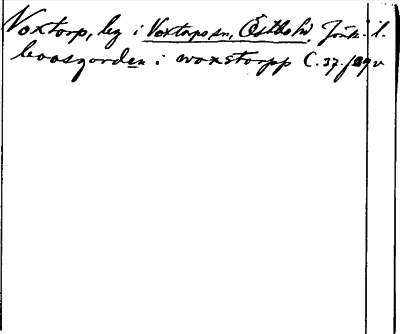 Voxtorp, by i Voxtorps sn, Östbo hd. Jönk. l.
boosgorden i woxstorpp C. 37. f 29 v